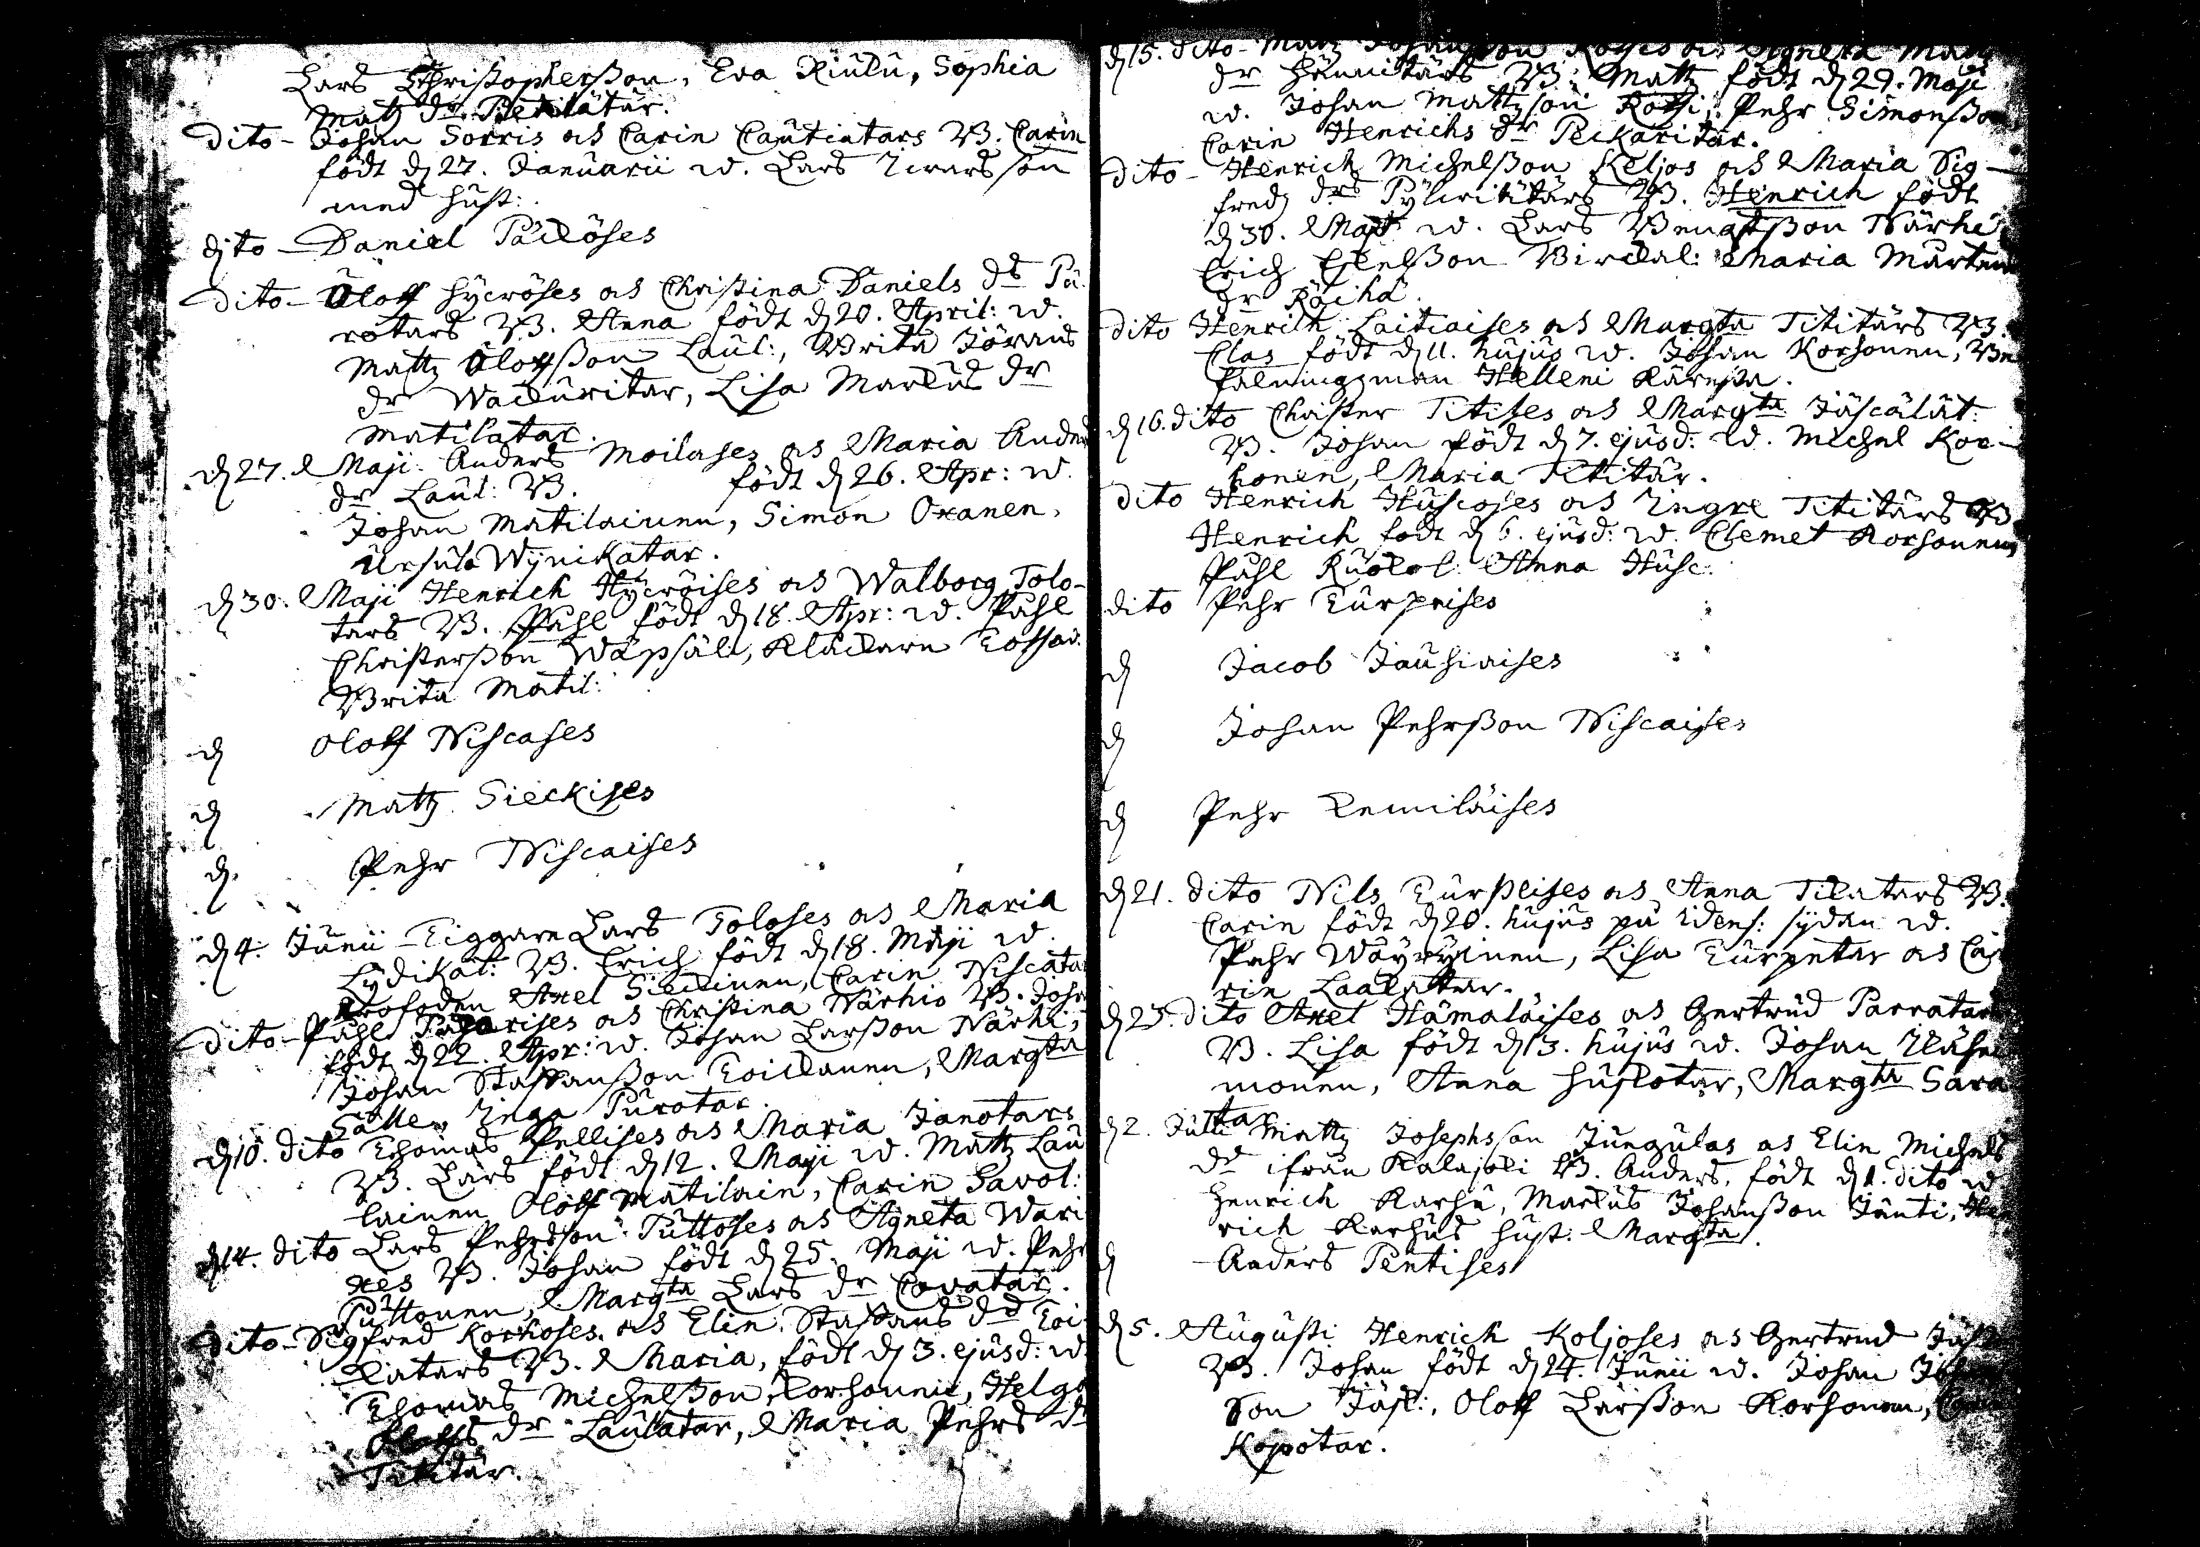 Lars Christopherßon, Eva Kiulu, Sophia
Matz dr
dito - Johan Sorris och Carin Cautiatars B. Carin
född d 27. Januarii w. Lars Iwarsson
med hust:
dito - Daniel Päcköses
dito - Oloff Hycröses och Christina Daniels ds Pu-
rotars B. Anna född d 20. April: w.
Mattz Oloffßon Laul:, Brita Jörans
dr Wackuritar, Lisa Markus dr
Matilatar.
d 27. Maji. Anders Moilases och Maria Anders
dr Laul: B. född d 26. Apr: w.
Johan Matilainen, Simon Oxanen,
Ursula Wynikatar.
d 30. Maji Henrich Hycröises och Walborg Tolo-
tars B. Påhl född d 18. Apr: w. Påhl
Christerßon Wäpsäl:, Klåckarn
Brita Matil:
d Oloff Niscases
d Mattz Sieckises
d Pehr Niscaises
d 4. Junii Tiggaren Lars Toloses och Maria
Lydikat: B. Erich född d 18. Maji w.
Profoden Axel Carin Niscatar
dito - Påhl och Christina Närhis B. Joha
född d 22. Apr: w. Johan Larßon Närhi,
Johan Staffanßon Toickanen, Margta
Inga Purotar.
d 10. dito Thomas Pellises och Maria Janotars
B. Lars född d 12. Maji w. Mattz Lau
lainen Oloff Matilain, Carin Savol:
d 14. dito Lars Pehrsson Puttoses och Agneta Wari
xes B. Johan född d 25. Maji w. Pehr
Puttonen, Margta Lars dr Covatar.
dito - Sigfred Korhoses och Elin Staffans ds Toi-
katars B. Maria, född d 3. ejusd: w.
Thomas Michelßon Korhonnie, Helga
dr Laulatar, Maria Pehrs dr
Tikitär.
d 15. dito - Matz Johanßon och Agneta Matz
dr B: Mattz född d 29. Maji
w. Johan Mattzson Pehr Simonßon
Carin Henrichs dr Peckaritär.
dito - Henrich Michelßon Keljos och Maria Sig-
freds drs B. Henrich född
d 30. Maji w. Lars Närhi
Erich Birckal: Maria Mårtens
dr Räihä.
dito Henrich Laitiaises och Margta Tititärs B.
Clas född d 11. hujus w. Johan Korhonen, Be
falningzman Helleni Käresta.
d 16. dito Christer Titises och Margta Jäscälät:
B. Johan född d 7. ejusd: w. Michel Kor-
honen, Maria Tititär.
dito Henrich Huscoses och Ingre Tititärs B
Henrich född d 6. ejusd: w. Clemet Korhonen,
Påhl Anna Husc:
dito Pehr Turpeises
d Jacob Jauhiaises
d Johan Pehrßon Niscaises
d Pehr Kemiläises
d 21. dito Nils Turpeises och Anna Tikatars B.
Carin född d 20. hujus på Idens: sydan w.
Pehr Wäyrynen, Lisa Turpetar och Ca-
rin Laakattar.
d 25. dito Axel Hämäläises och Gertrud Parratars
B. Lisa född d 13. hujus w. Johan
monen, Anna Huskotar, Margta Sara
tar
d 2. Julii Mattz Josephsson Jungulas och Elin Michels
ds ifrån Kalajoki B. Anders, född d 1. dito w
Henrich Karhu, Markus Johanßon Jänti, Hen
rich Karhus hust: Margta.
d Anders Pentises
d 5. Augusti Henrich Koljoses och Gertrud
B. Johan född d 24. Junii w. Johan
son Oloff Larßon Korhonen,
Kopotar.